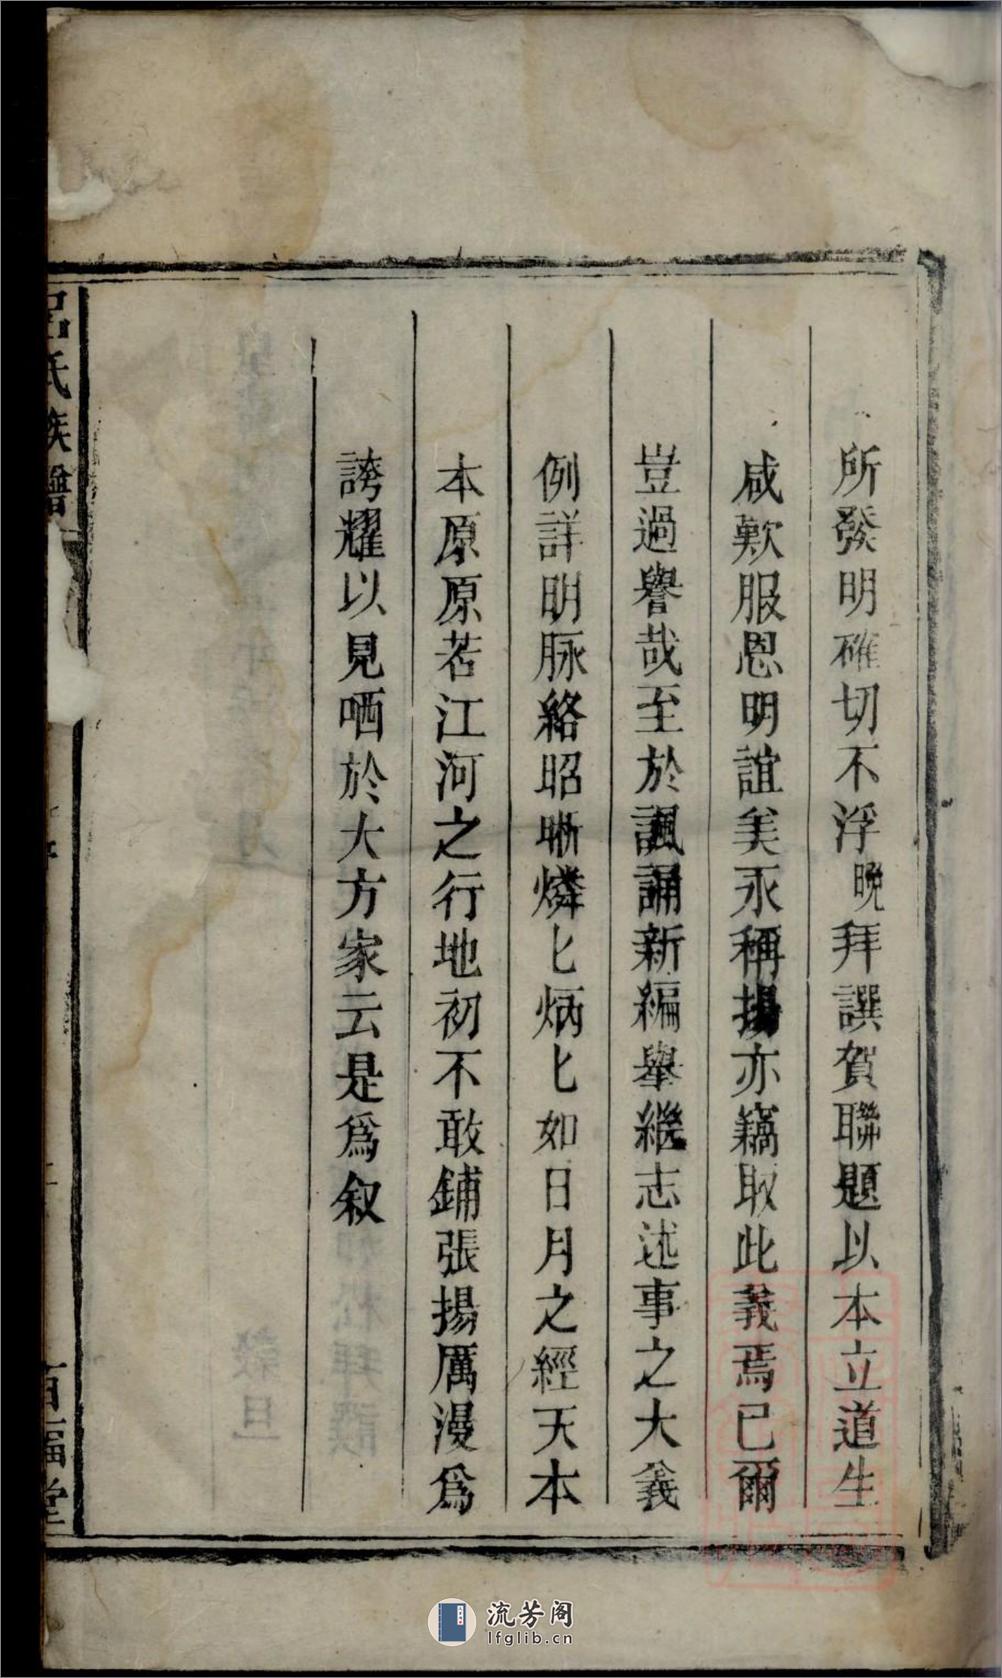 所發明確切不浮晚拜譔賀聯題以本立道生
咸歎服恩明誼美永稱揚亦竊取此義焉已爾
豈過譽哉至於諷誦新編舉繼志述事之大義
例詳明脉絡昭晰燐匕炳匕如日月之經天本
本原原若江河之行地初不敢鋪張揚厲漫爲
誇耀以見哂於大方家云是爲叙
呂氏族譜
百福堂
流芳阁
lfglib.cn